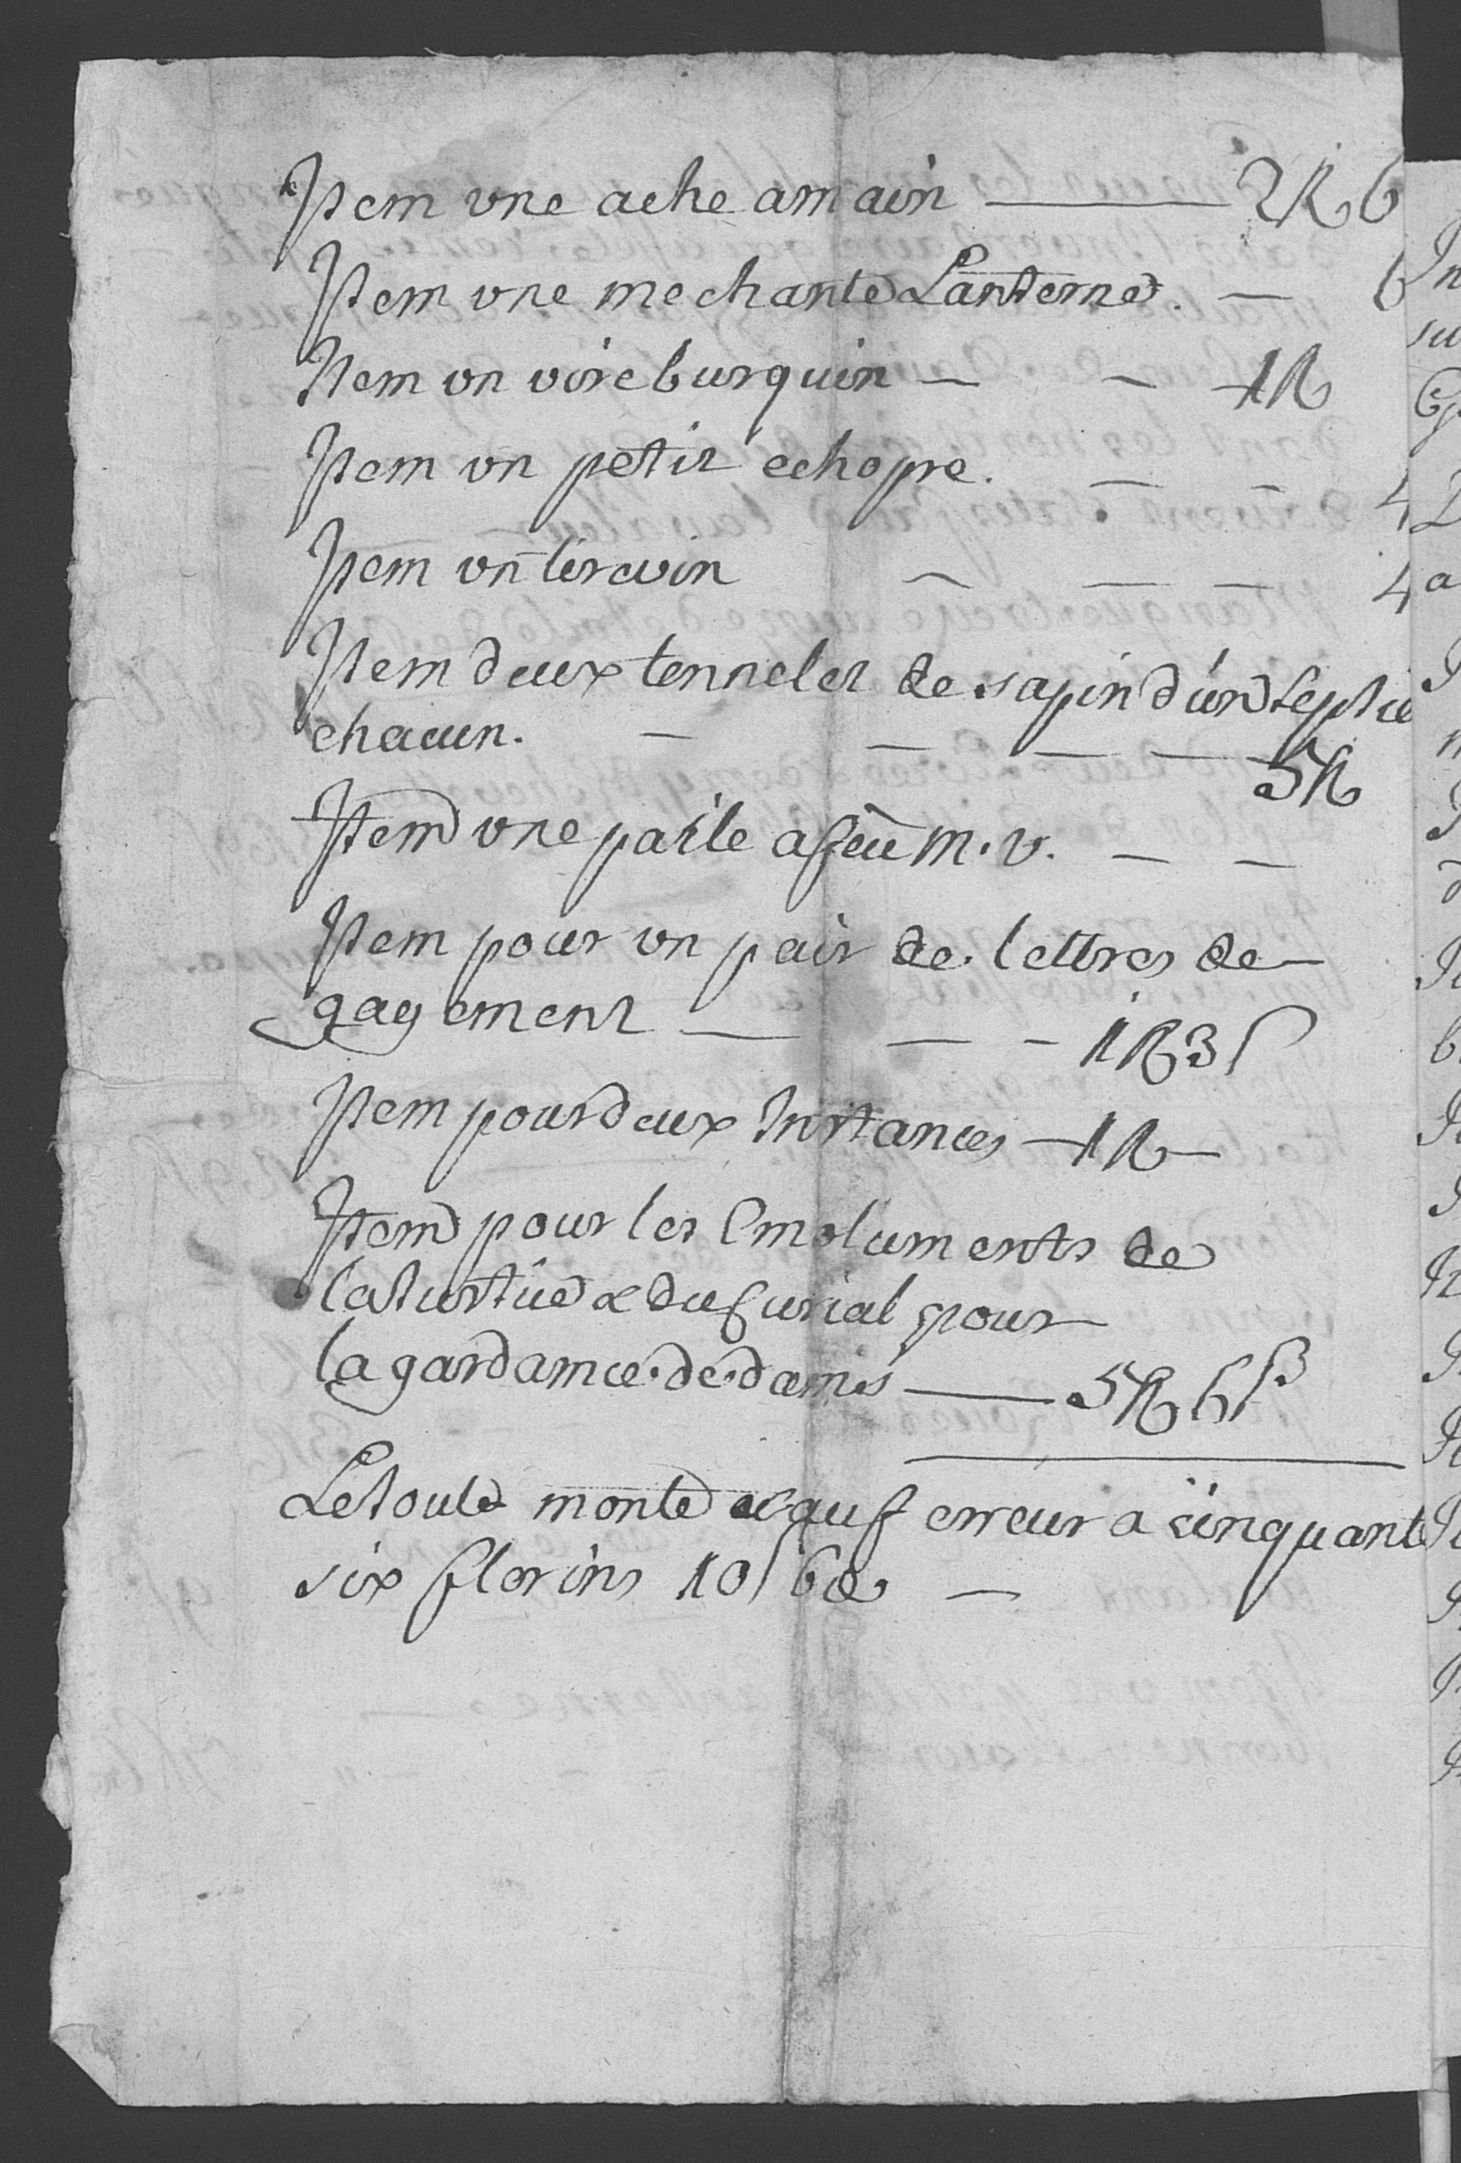 Item une ache a main — 2 ff 6
Item une mechante Lanterne. — 6
Item un vireburquin — — 1 ff
Item un petit echopre. — — 4
Item un tire vin — — — 4
Item deux tennelet de sapin d'un septie
chacun. — — — —
5 ff
Item une paile a feu m. v. — —
Item pour un pair de lettres de
gagement — — — 1 ff 3 s
Item pour deux Instances — 1 ff —
Item pour les Emoluments de
la & du Curial pour
la gardamce de damis — 5 ff 6 s 3
Le toute monte sauf erreur a cinquante
six florins 10 s 6 d —